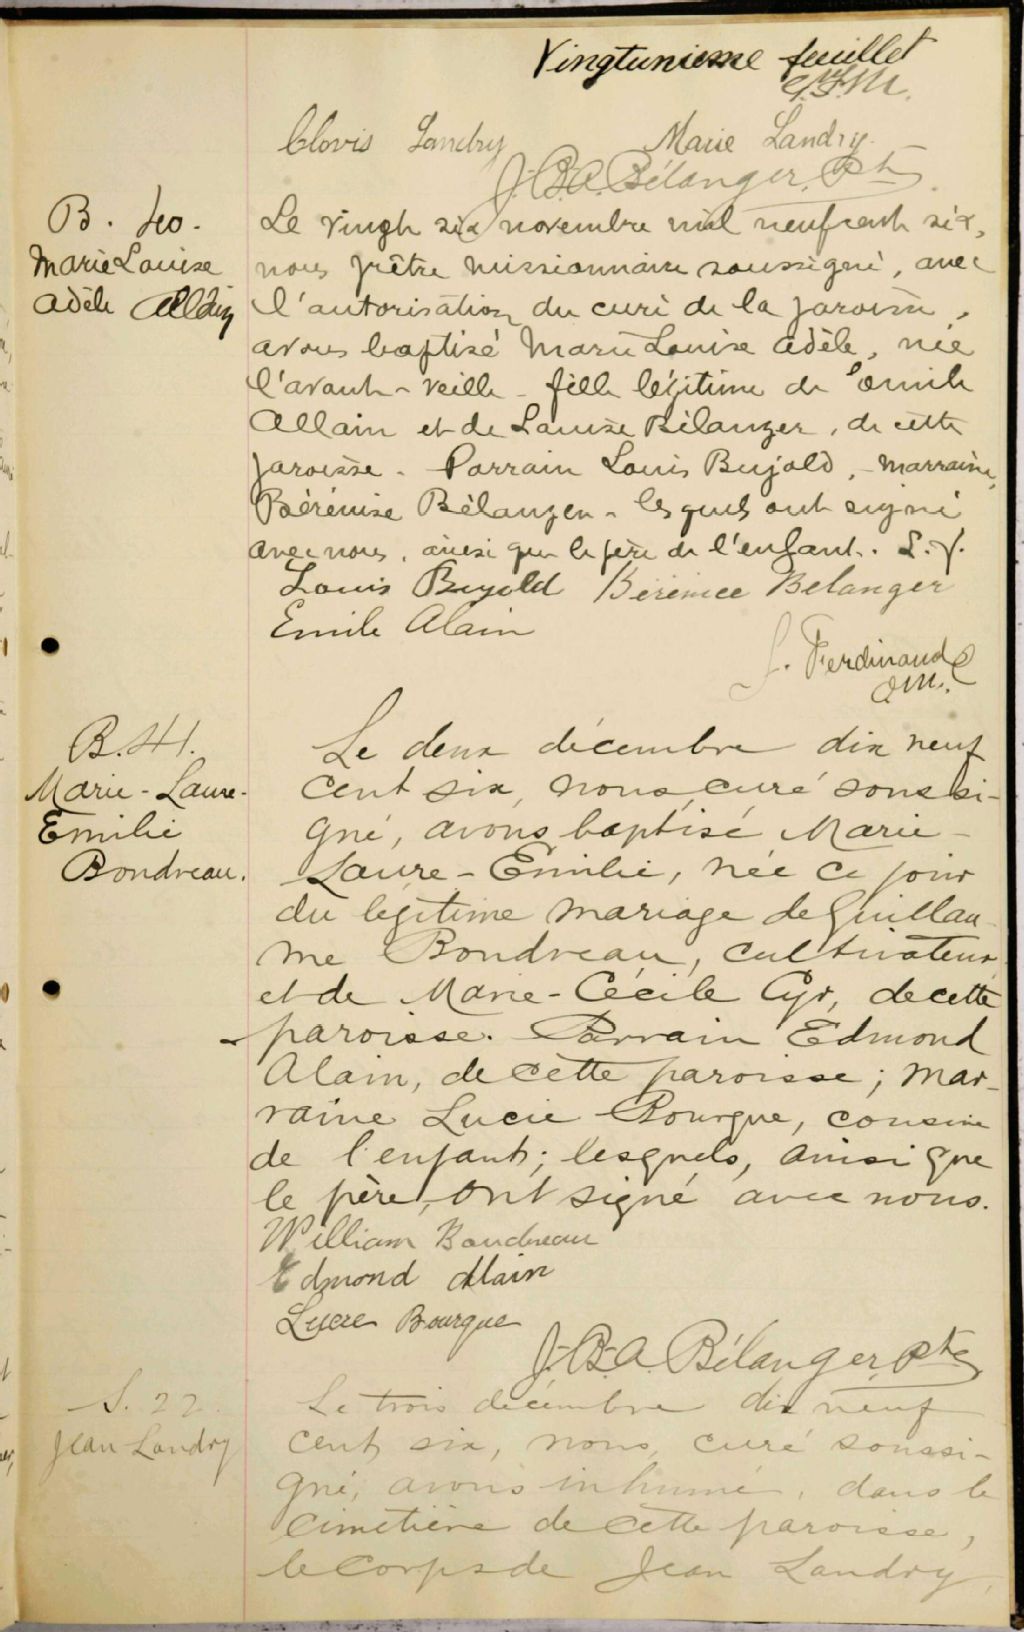 Vingtunieme feuillet
Clovis Landry Marie Landry.
J.-B.A. Bélanger, Ptre
B. 40.
Marie Louise
Adèle Allain
Le vingt six novembre mil neuf cent six,
nous prêtre missionnaire soussigné, avec
l'autorisation du curé de la paroisse,
avons baptisé Marie Louise Adèle, née
l'avant-veille - fille légitime de Emile
Allain et de Louise Bélanger, de cette
paroisse. Parrain Louis Bujold, - marraine,
Bérénise Bélanger - lesquels ont signé
avec nous, ainsi que le père de l'enfant. L. f.
Louis Bujold Bérénice Bélanger
Emile Alain
f. Ferdinand
B. 41.
Marie-Laure-
Emilie
Boudreau.
Le deux décembre dix neuf
cent six, nous, curé soussi-
gné, avons baptisé Marie-
Laure-Emilie, née ce jour
du légitime mariage de Guillau-
me Boudreau, cultivateur
et de Marie-Cécile Cyr, de cette
paroisse. Parrain Edmond
Alain, de cette paroisse; mar-
raine Lucie Bourque, cousine
de l'enfant; lesquels, ainsi que
le père, ont signé avec nous.
William Boudreau
Edmond Alain
Lucie Bourque
J.-B.-A. Bélanger, Ptre
S. 22.
Jean Landry
Le trois décembre dix neuf
cent six, nous, curé soussi-
gné, avons inhumé, dans le
cimetière de cette paroisse,
le corps de Jean Landry,